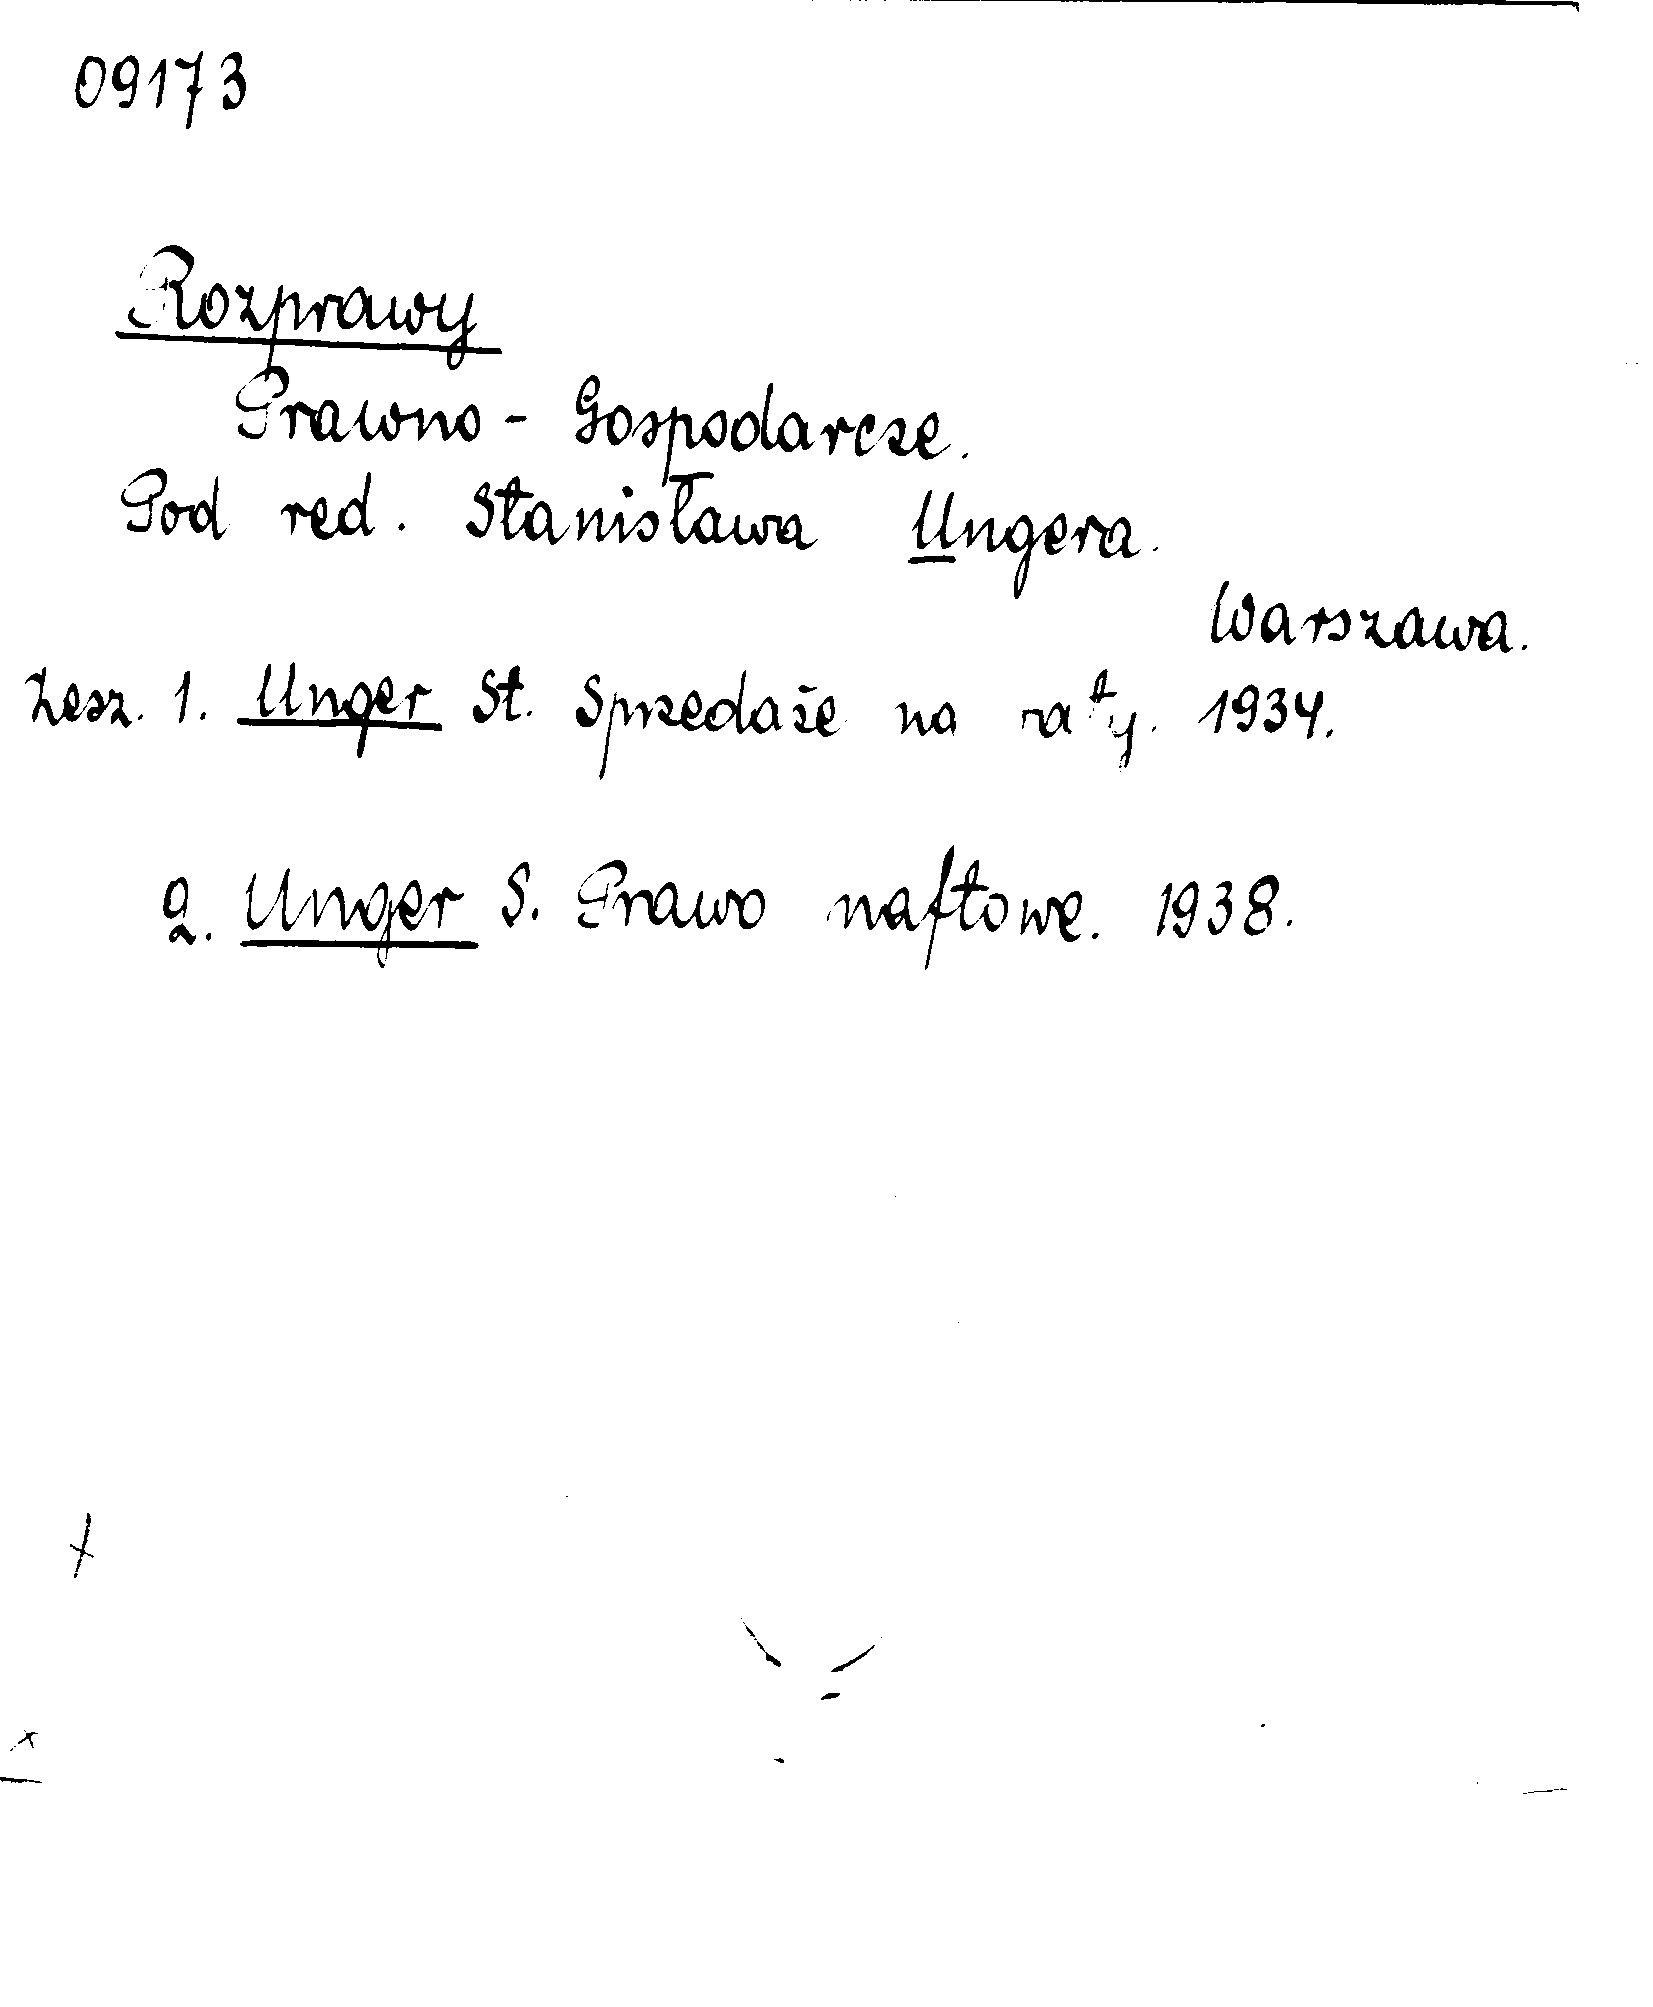 09173
Rozprawy
Prawno - Gospodarcze.
Pod red. Stanisława Ungera.
Warszawa.
Zesz. 1. Unger St. Sprzedaże na raty. 1934.
2. Unger S. Prawo naftowe. 1938.